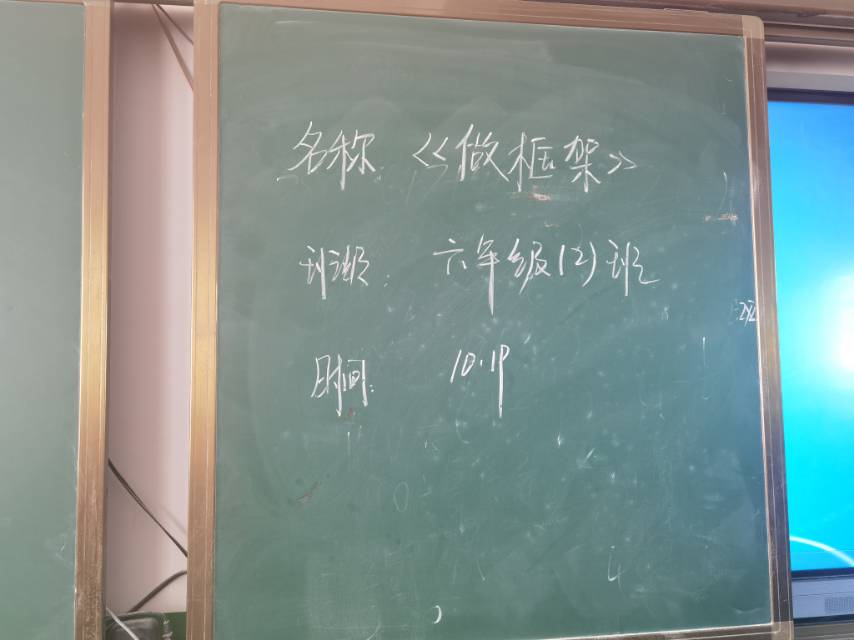 名称:《做框架》
班级:六年级(2)班
时间:10.19